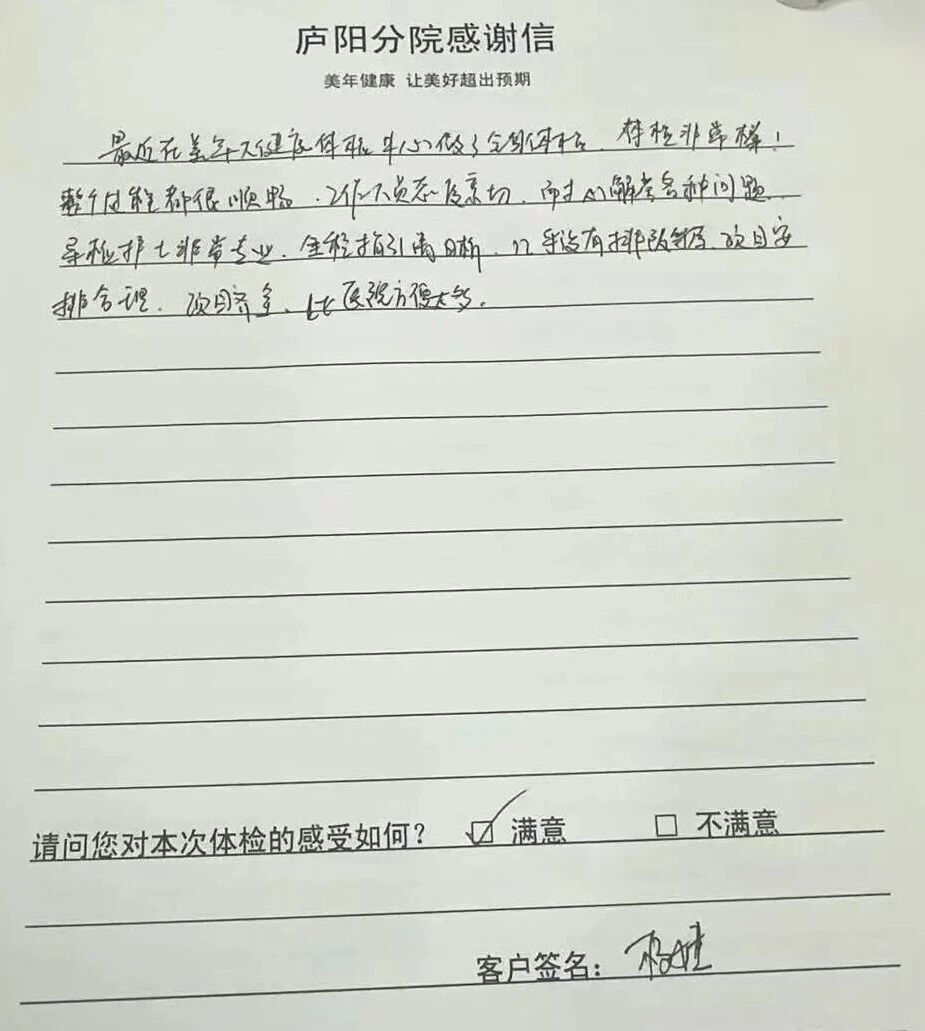 庐阳分院感谢信
美年健康 让美好超出预期
最近在美年大健康体检中心做了全身体检、体检非常棒！
整个过程都很顺畅、工作人员态度亲切、耐心解答各种问题、
导检护士非常专业、全程指引清晰、几乎没有排队等候 项目安
排合理、项目齐全、比医院方便太多。
请问您对本次体检的感受如何？ ☑ 满意 □ 不满意
客户签名：